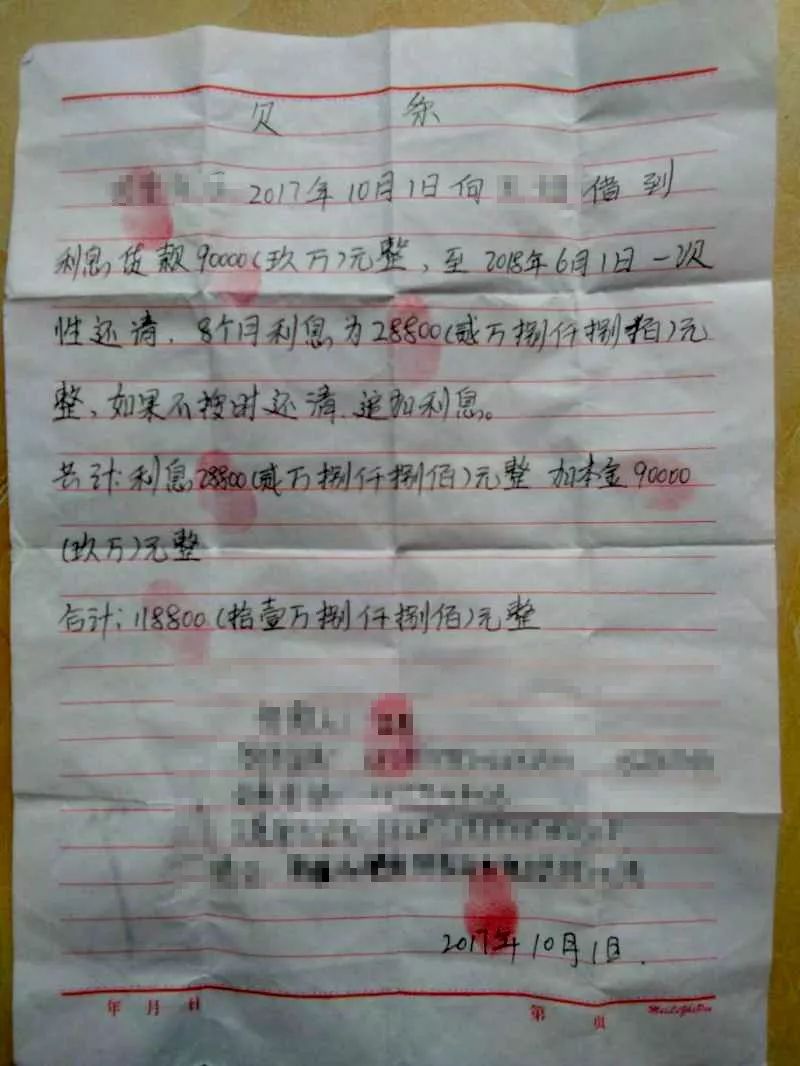 欠 条
2017年10月1日向 借到
利息贷款90000(玖万)元整,至2018年6月1日一次
性还清,8个月利息为28800(贰万捌仟捌佰)元
整,如果不按时还清,追加利息。
共计:利息28800(贰万捌仟捌佰)元整 加本金90000
(玖万)元整
合计:118800(拾壹万捌仟捌佰)元整
2017年10月1日.
年 月 日 第 页